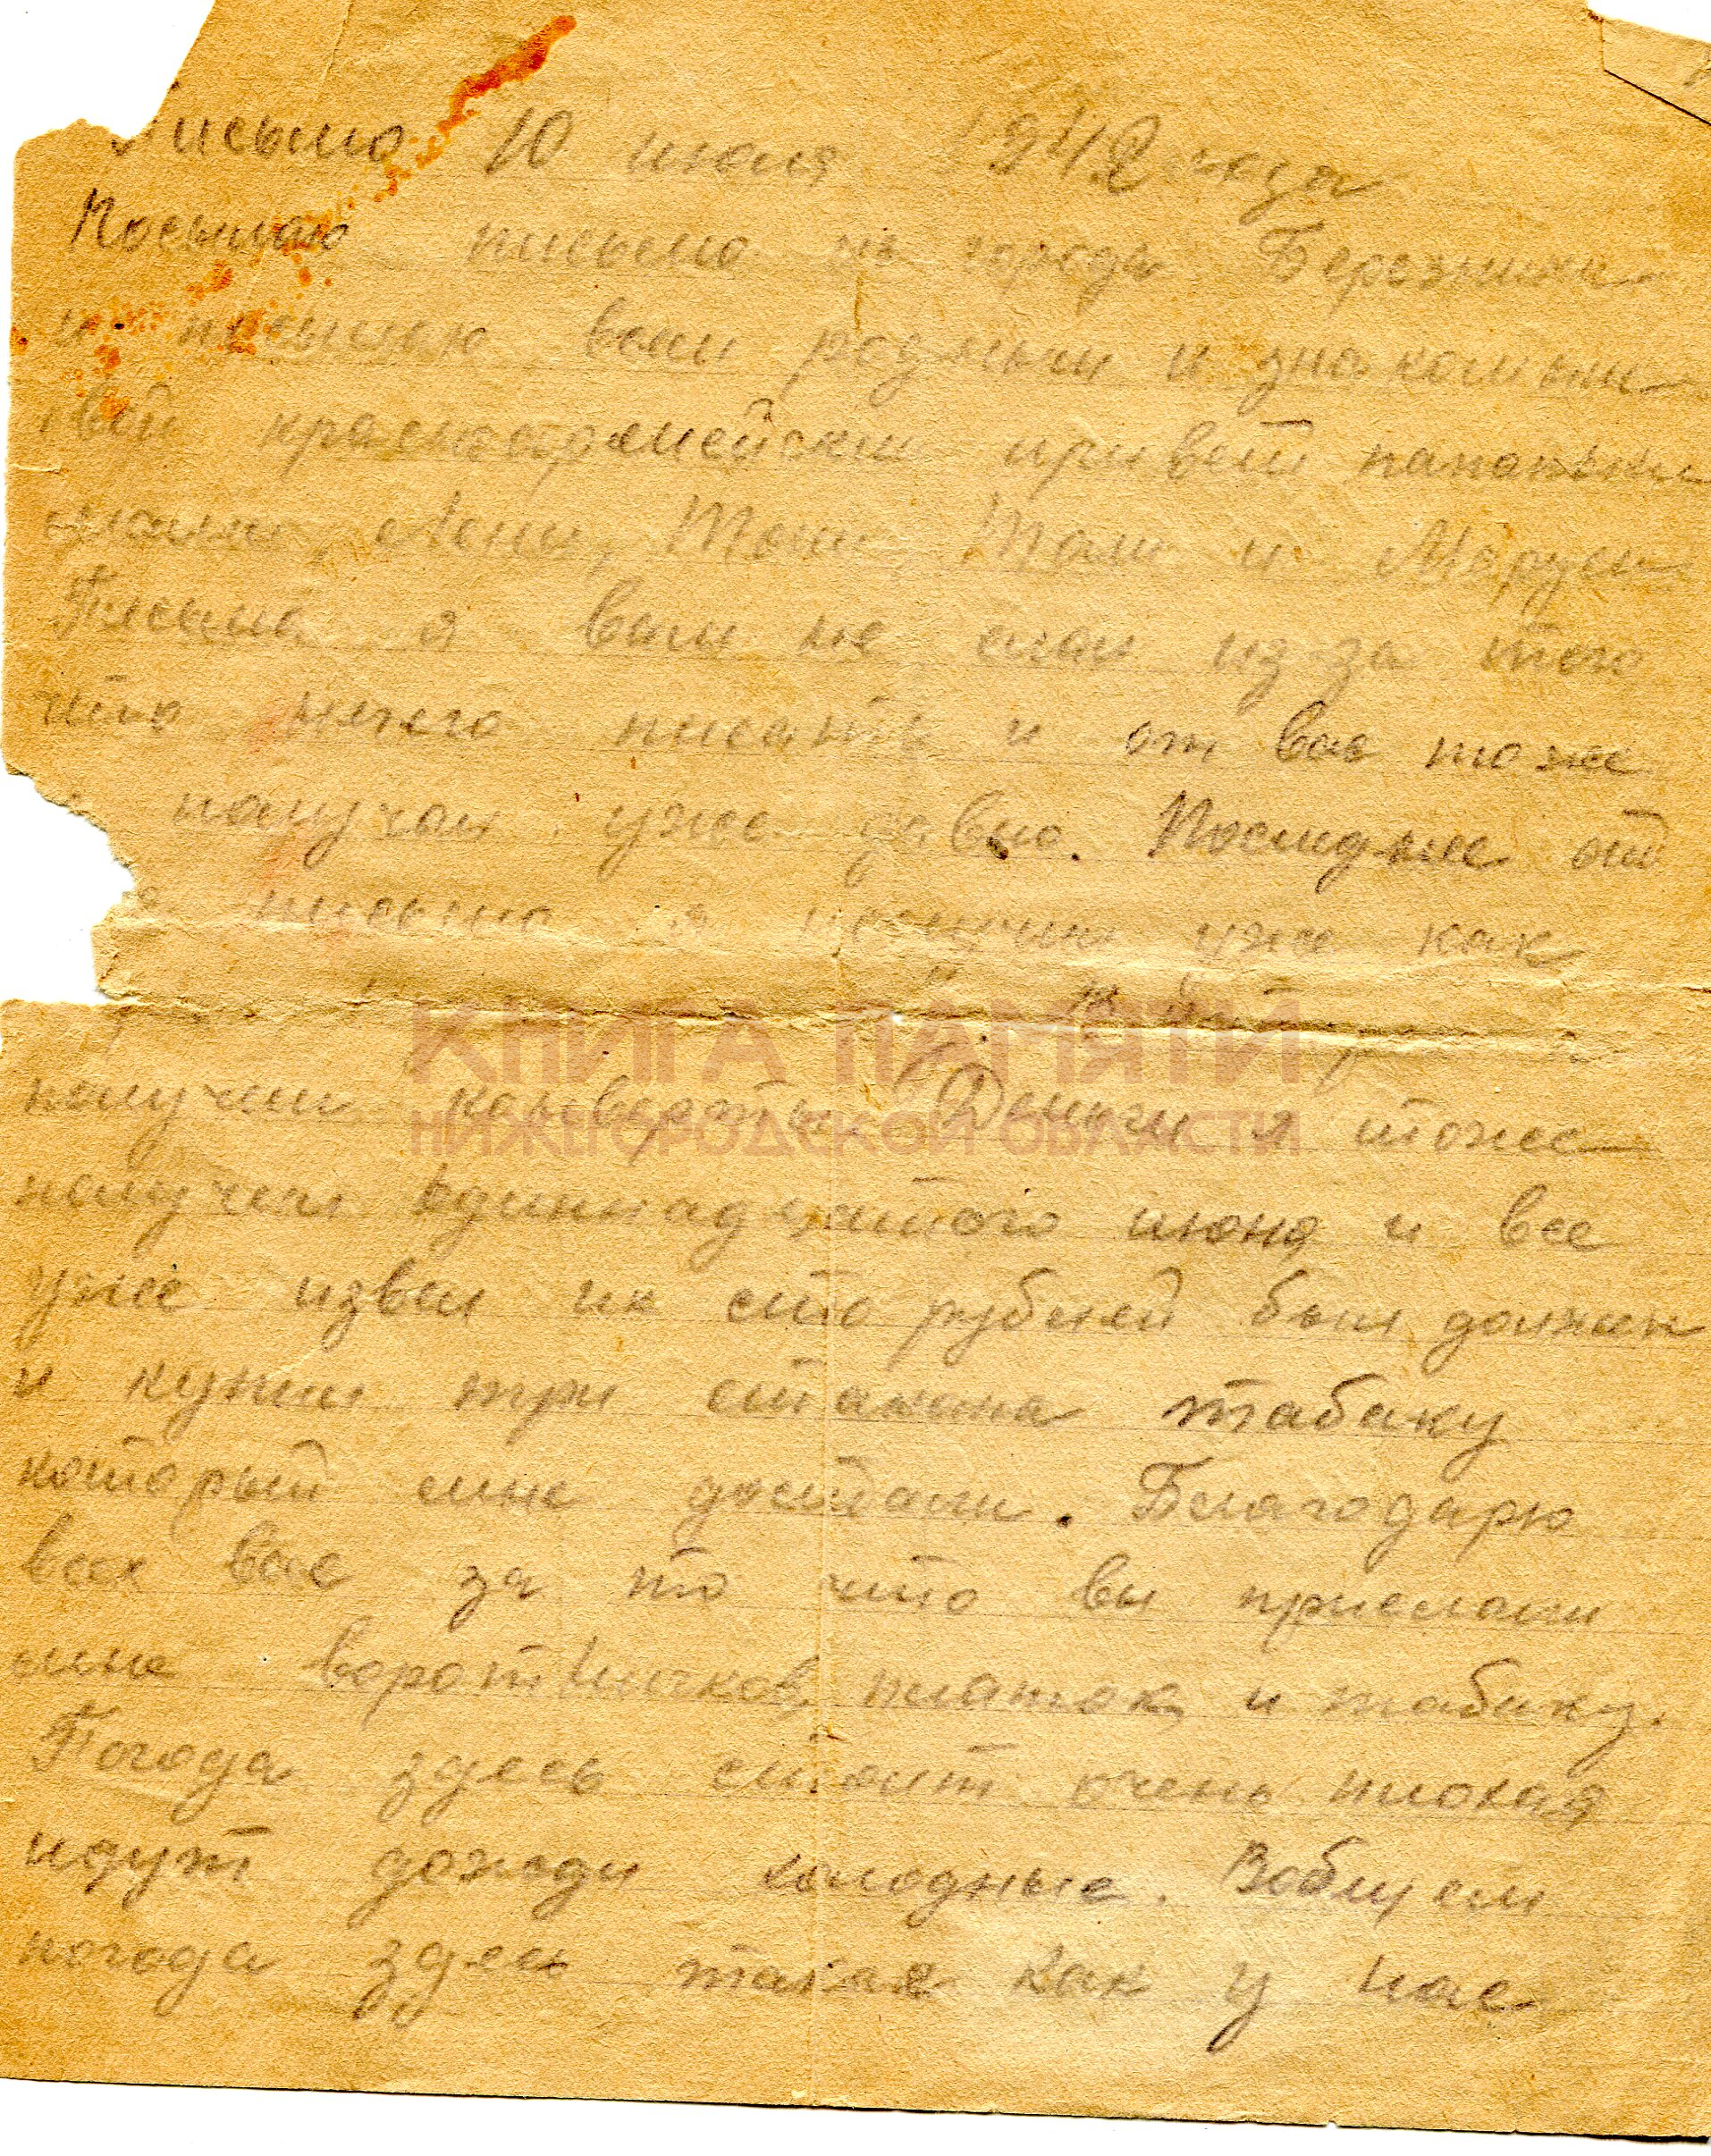 Письмо 10 июля 1942 года
Посылаю письмо из города Березники
и посылаю вам родным и знакомым
свой красноармейский привет папаньки
мамы, Лены, Тони, Толи и Маруси
Письма я вам не слал из-за того
что нечего писать и от вас тоже
получал уже давно. Последнее от
письмо я получил уже как
КНИГА ПАМЯТИ
НИЖЕГОРОДСКОЙ ОБЛАСТИ
получил конверты. Деньги я тоже
получил одиннадцатого июня и все
уже извел их сто рублей был должен
и купил три стакана табаку
который мне достали. Благодарю
всех вас за то что вы прислали
мне воротничков, платок и табаку.
Погода здесь стоит очень плохая
идут дожди холодные. Вобщем
погода здесь такая как у нас